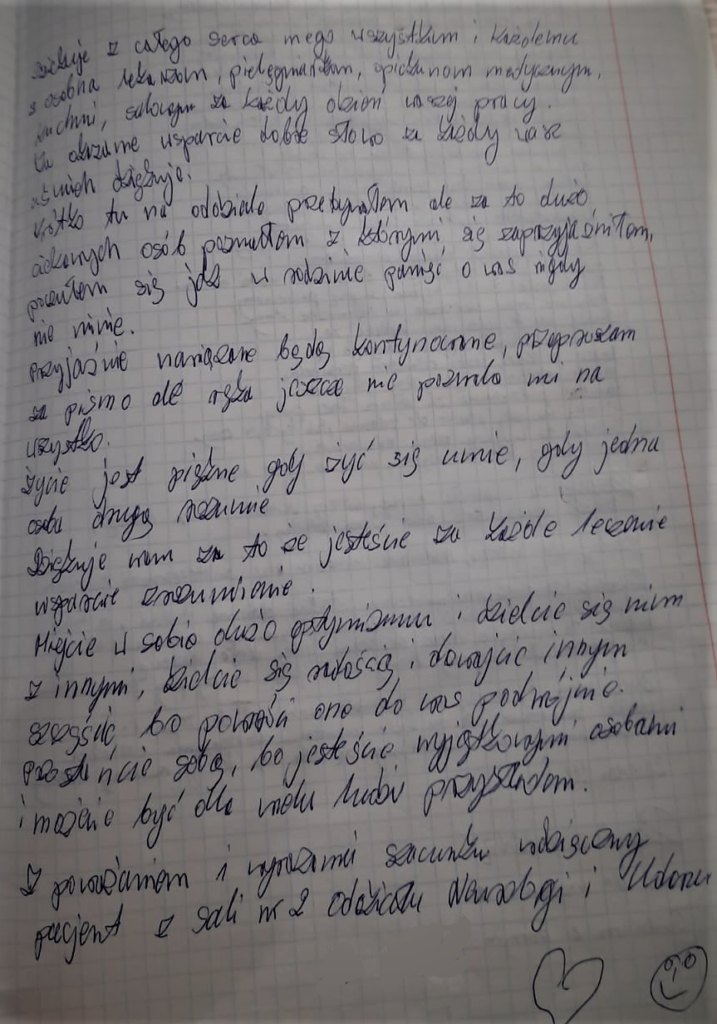 Dziękuje z całego serca mego wszystkim i każdemu
z osobna lekarzom, pielęgniarkom, opiekunom medycznym,
kuchni, salowym za każdy dzień waszej pracy.
Za okazane wsparcie dobre słowo za każdy wasz
uśmiech dziękuje.
Krótko tu na oddziale przebywałem ale za to dużo
ciekawych osób poznałem z którymi się zaprzyjaźniłem,
poczułem się jak w rodzinie pamięć o was nigdy
nie minie.
Przyjaźnie nawiązane będą kontynuowane, przepraszam
za pismo ale ręka jeszcze nie pozwala mi na
wszystko.
Życie jest piękne gdy żyć się umie, gdy jedna
osoba drugą rozumie
Dziękuje wam za to że jesteście za każde leczenie
wsparcie zrozumienie.
Miejcie w sobie dużo optymizmu i dzielcie się nim
z innymi, dzielcie się radością i dawajcie innym
szczęście, bo powróci ono do was podwójnie.
sobą, bo jesteście wyjątkowymi osobami
i możecie być dla wielu ludzi przykładem.
Z poważaniem i wyrazami szacunku wdzięczny
pacjent z sali nr 2 oddziału Neurologi i Udaru